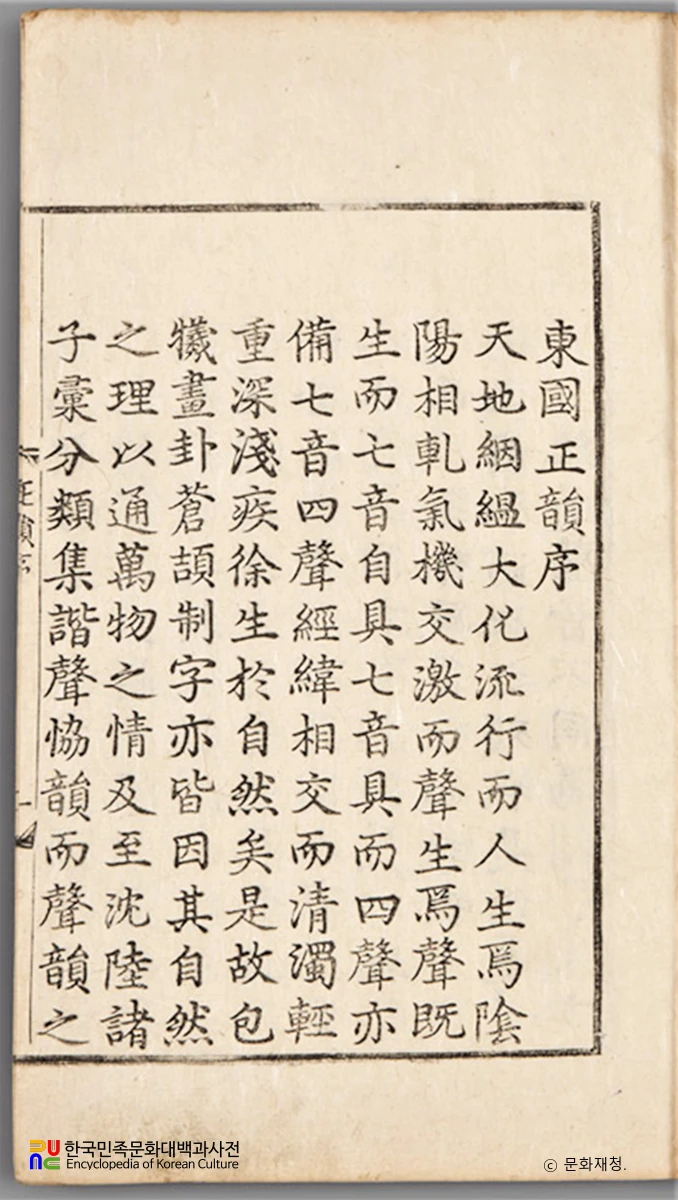 東國正韻序
天地絪縕大化流行而人生焉陰
陽相軋氣機交激而聲生焉聲既
生而七音自具七音具而四聲亦
備七音四聲經緯相交而清濁輕
重深淺疾徐生於自然矣是故包
犧畫卦蒼頡制字亦皆因其自然
之理以通萬物之情及至沈陸諸
子彙分類集諧聲恊韻而聲韻之
正韻序
한국민족문화대백과사전
Encyclopedia of Korean Culture
ⓒ 문화재청.